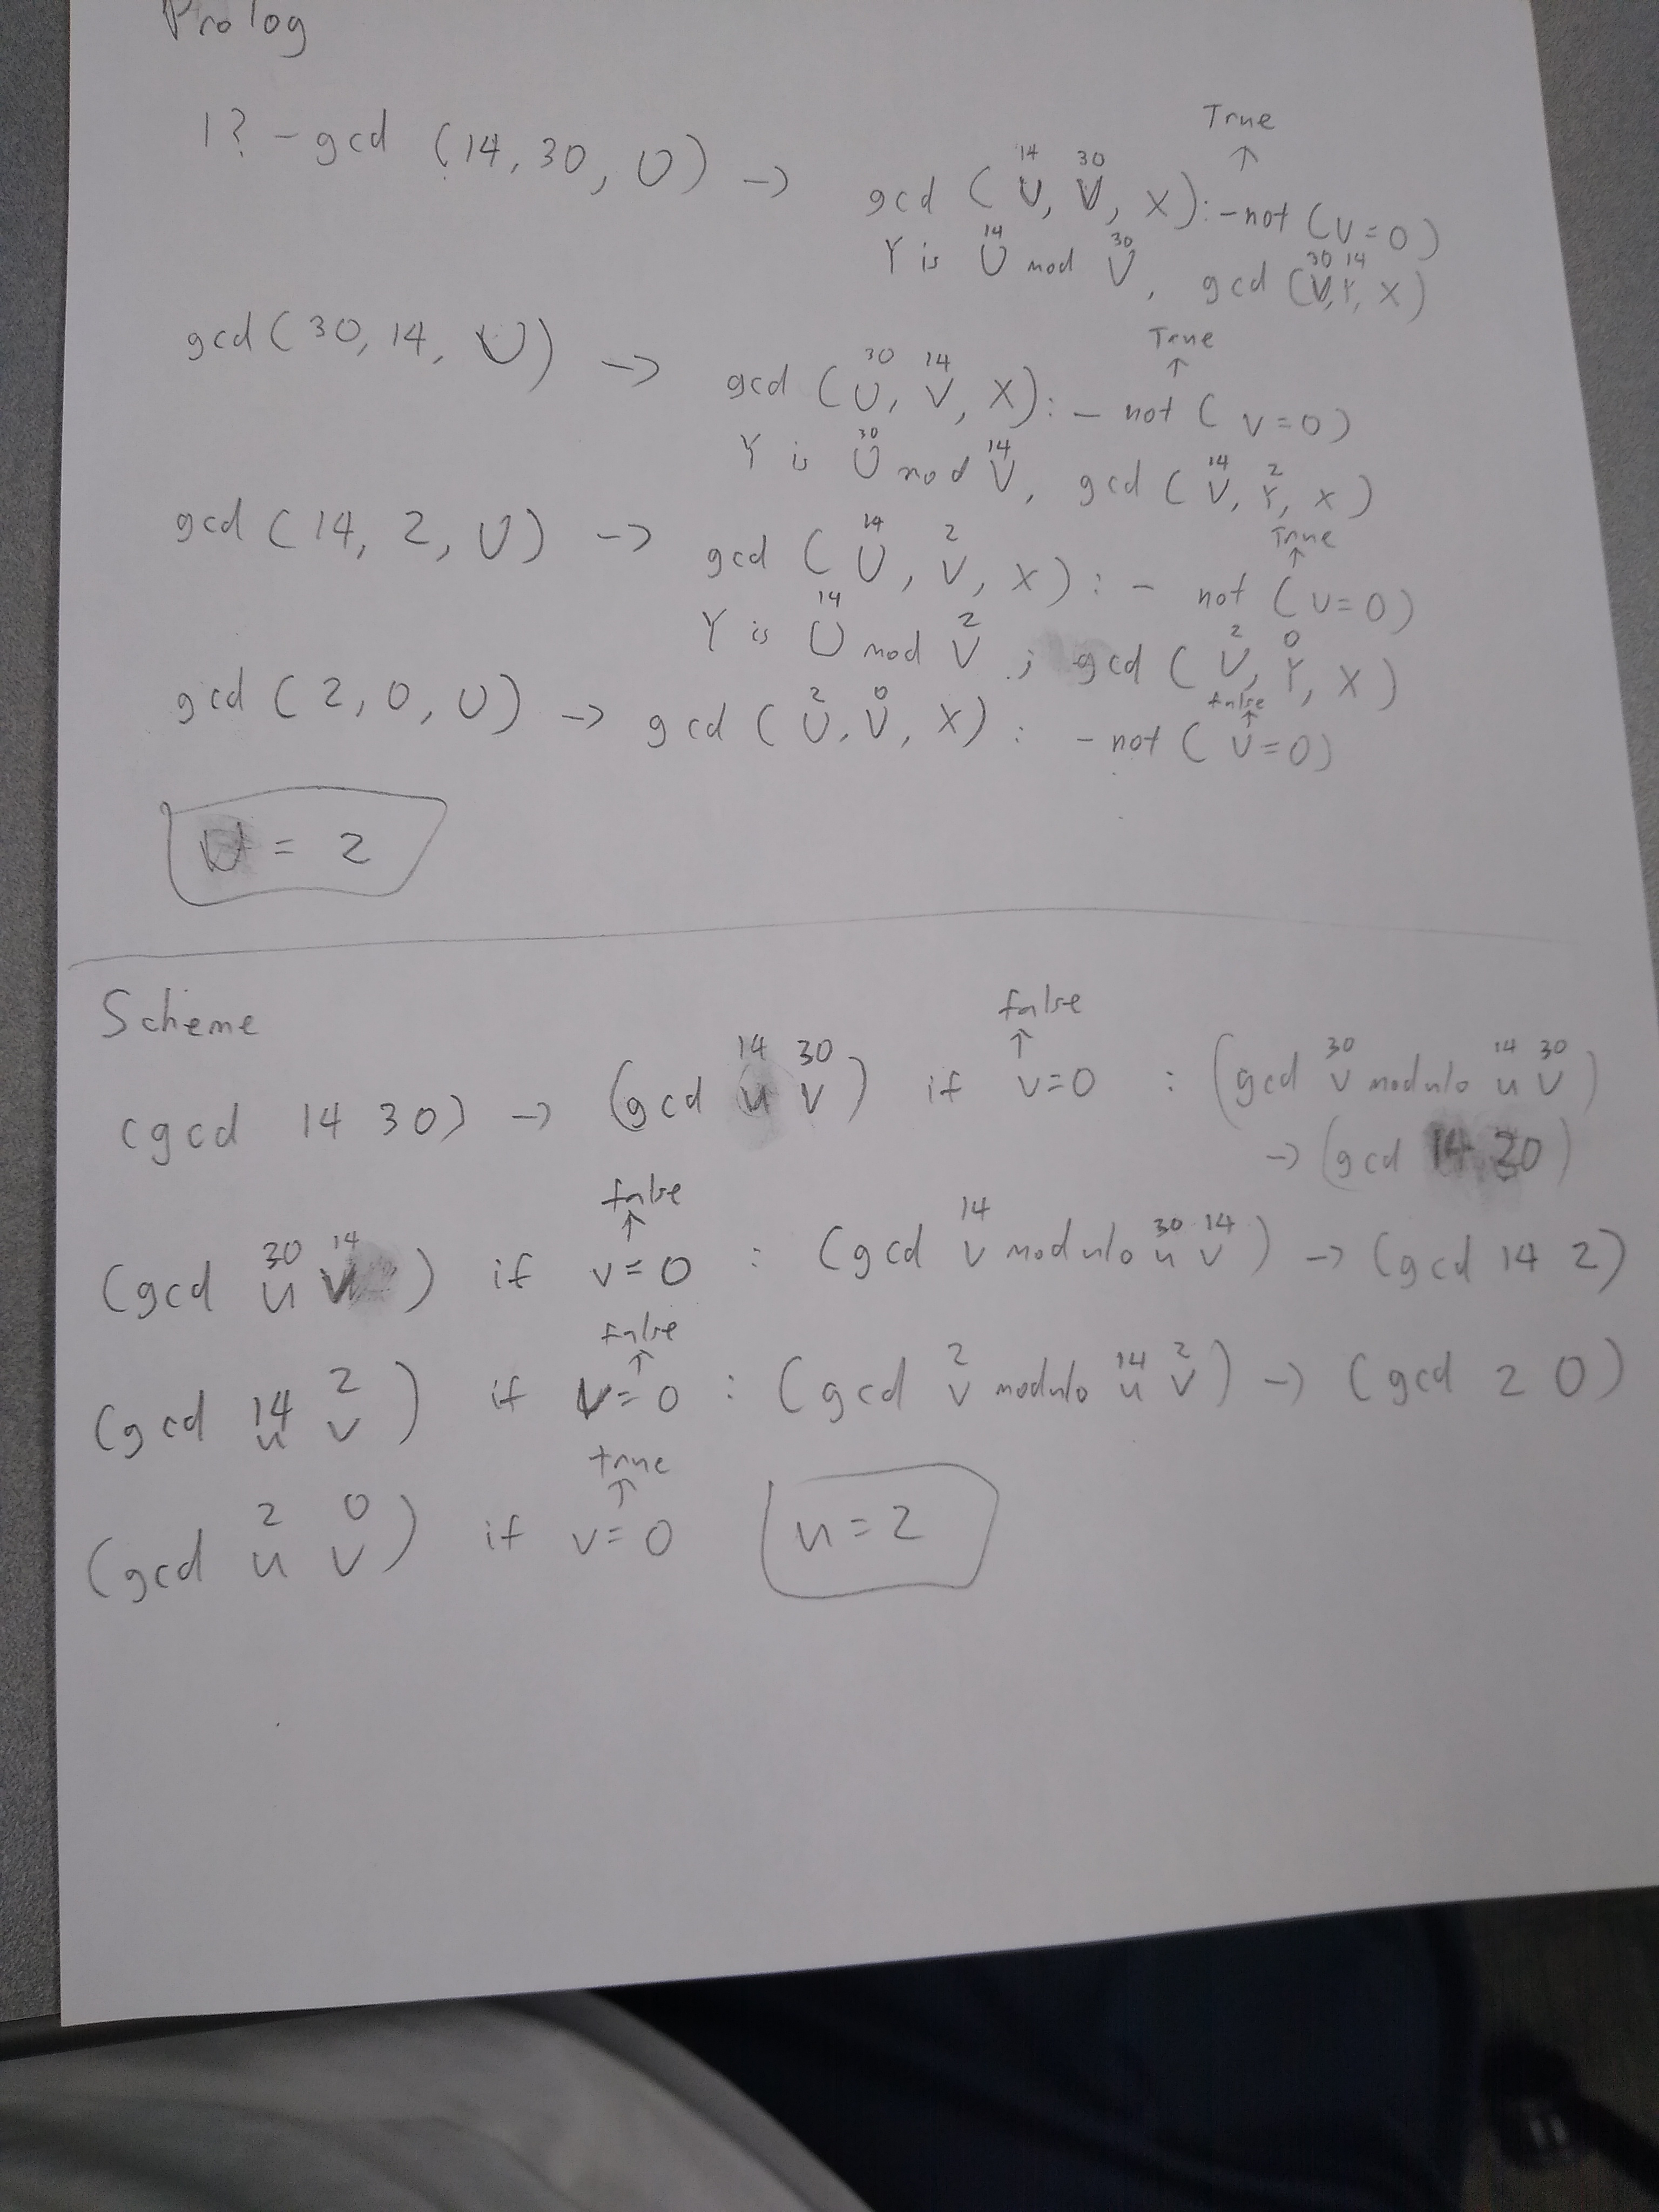 Prolog
True
↑
14 30
1? - gcd (14, 30, U) -> gcd ( U, V, X):-not (V=0)
14 30 30 14
Y is U mod V, gcd (V,Y, X)
True
↑
30 14
gcd(30, 14, U) -> gcd (U, V, X): - not ( V=0)
30 14 14 2
Y is U mod V, gcd ( V, Y, X)
True
↑
14 2
gcd ( 14, 2, U) -> gcd ( U, V, X) : - not (V=0)
14 2 2 0
Y is U mod V , gcd ( V, Y, X)
false
↑
2 0
gcd ( 2, 0, U) -> gcd ( U, V, X) : -not ( V=0)
U = 2
Scheme
false
↑
14 30 30 14 30
(gcd 14 30) -> (gcd u v) if v=0 : (gcd v modulo u v)
-> (gcd 14 30)
false
↑
30 14 14 30 14
(gcd u v ) if v=0 : (gcd v modulo u v ) -> (gcd 14 2)
false
↑
14 2 2 14 2
(gcd u v ) if v=0 : (gcd v modulo u v ) -> (gcd 2 0)
true
↑
2 0
(gcd u v ) if v=0 u=2